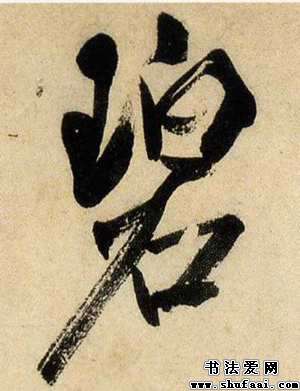 碧
书法爱网
www.shufaai.com